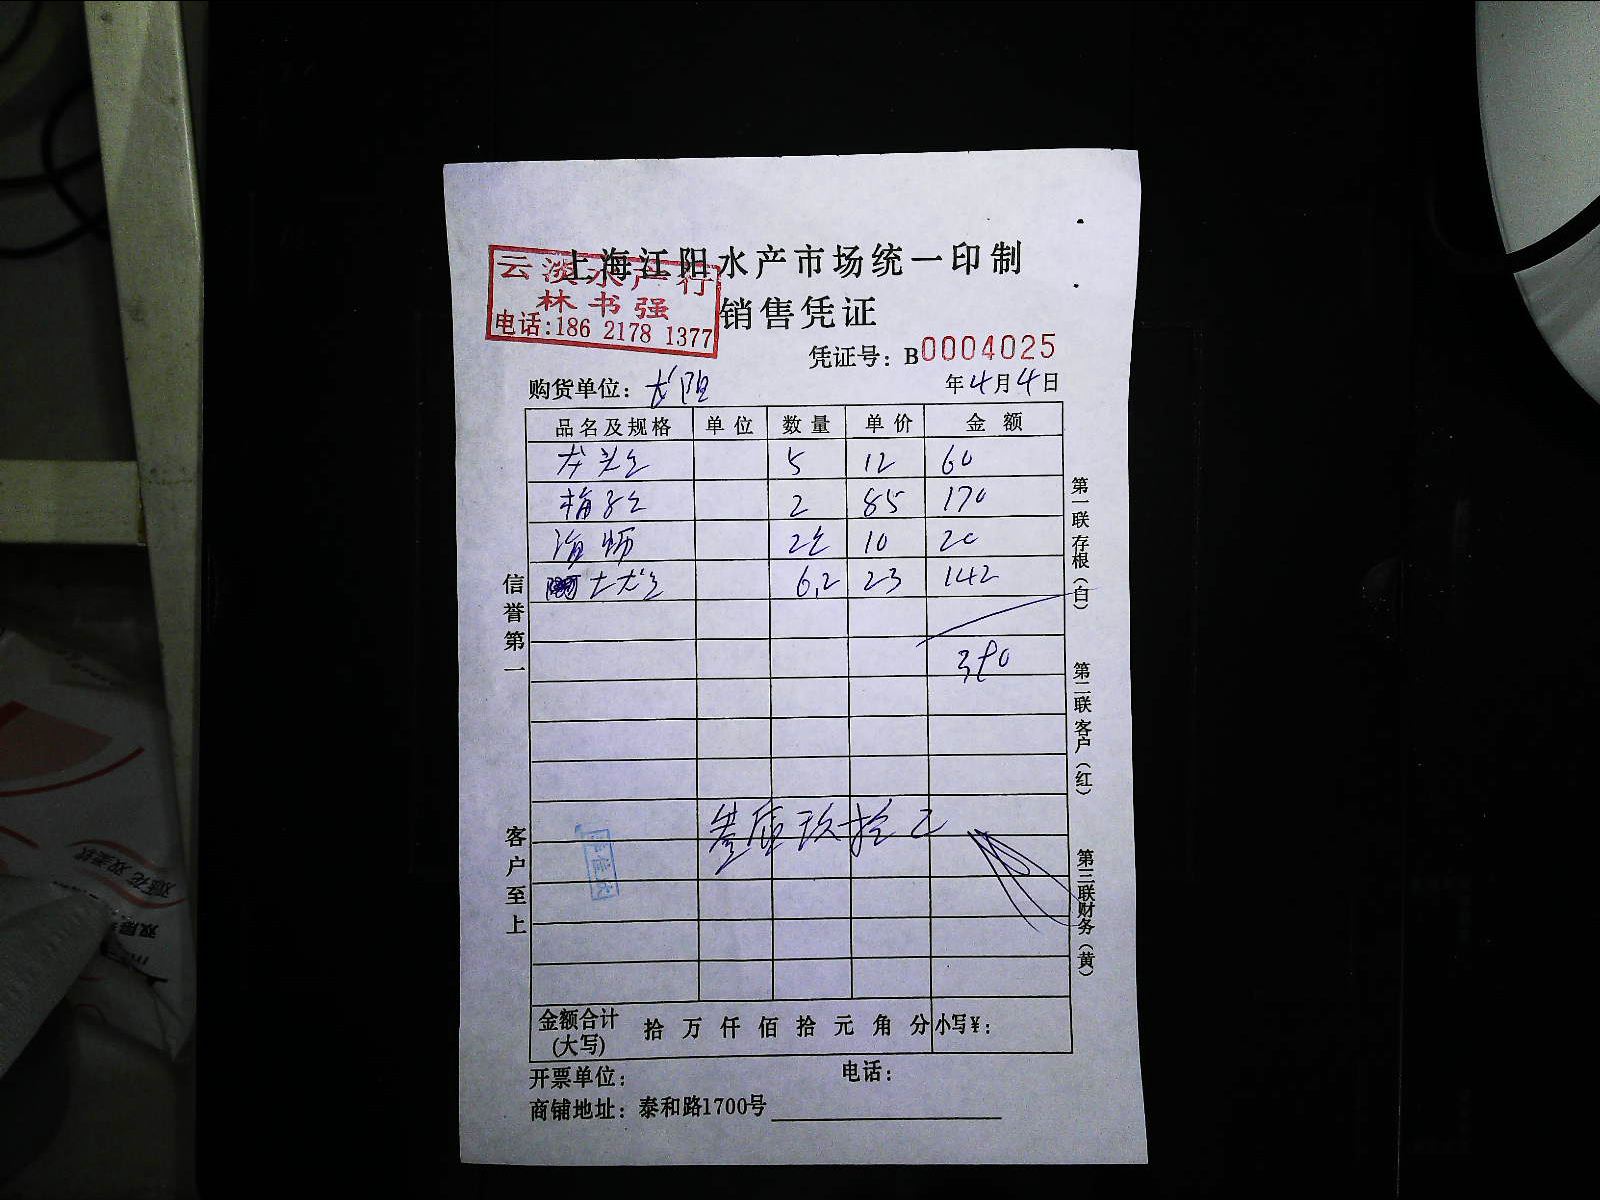 上海江阳水产市场统一印制
云淡水产行
林书强
电话:186 2178 1377
销售凭证
凭证号: B0004025
购货单位: 长阳
年4月4日
品名及规格 单位 数量 单价 金额
龙头鱼 5 12 60
梅子鱼 2 85 170
海蛎 2包 10 20
6.2 23 142
390
叁佰玖拾元
金额合计(大写) 拾 万 仟 佰 拾 元 角 分 小写¥:
开票单位: 电话:
商铺地址: 泰和路1700号
信誉第一
客户至上
第一联存根(白)
第二联客户(红)
第三联财务(黄)